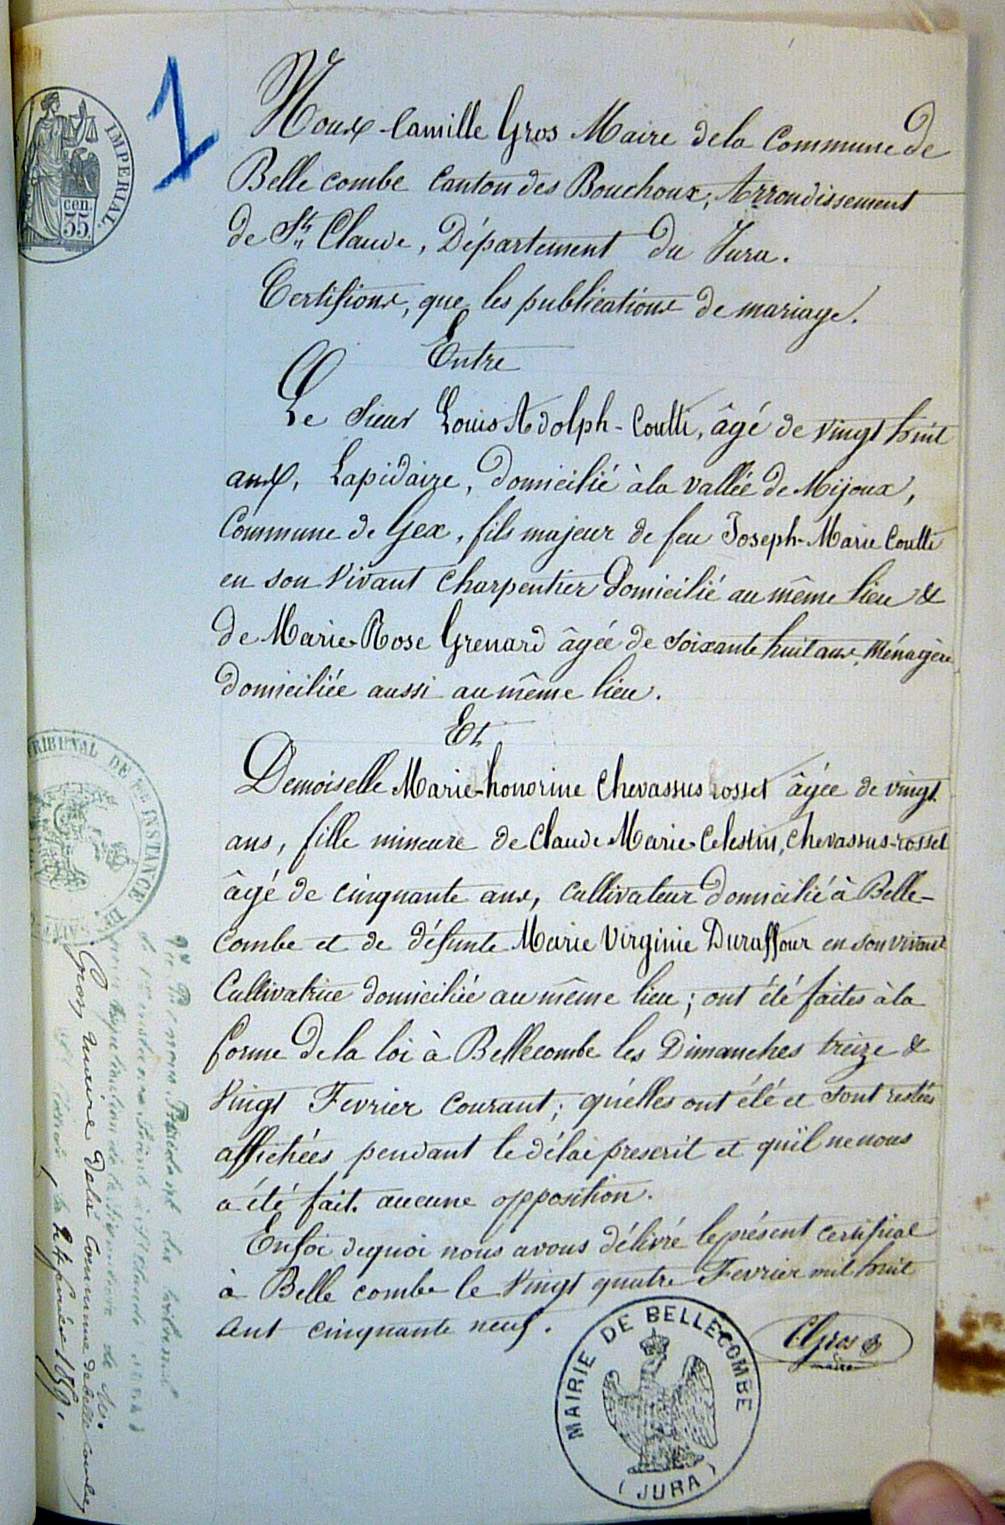 1
IMPERIAL.
35 cen.
Nous Camille Gros Maire de la Commune de
Belle combe Canton des Bouchoux, Arrondissement
de St Claude, Département du Jura.
Certifions, que les publications de mariage.
Entre
Le Sieur Louis Adolph-Coutti, âgé de vingt huit
ans, Lapidaire, domicilié à la vallée de Mijoux,
Commune de Gex, fils majeur de feu Joseph-Marie Coutti
en son vivant charpentier domicilié au même lieu &
de Marie-Rose Grenard âgée de soixante huit ans, Ménagère
domiciliée aussi au même lieu.
Et
Demoiselle Marie-honorine Chevassus rosset âgée de vingt
ans, fille mineure de Claude Marie-Celestin, Chevassus-rosset
âgé de cinquante ans, cultivateur domicilié à Belle-
combe et de défunte Marie Virginie Duraffour en son vivant
Cultivatrice domiciliée au même lieu; ont été faites à la
forme de la loi à Bellecombe les Dimanches treize &
Vingt Fevrier courant; qu'elles ont été et sont restées
affichées pendant le délai prescrit et qu'il ne nous
a été fait aucune opposition.
En foi de quoi nous avons délivré le présent certificat
à Belle combe le Vingt quatre Fevrier mil huit
cent cinquante neuf.
CGros
maire
MAIRIE DE BELLECOMBE
(JURA)
TRIBUNAL DE 1re INSTANCE DE
Président du tribunal
de première instance à St Claude
pour légalisation de la signature de Mr
Gros, maire de la Commune de belle combe,
le 24 février 1859.